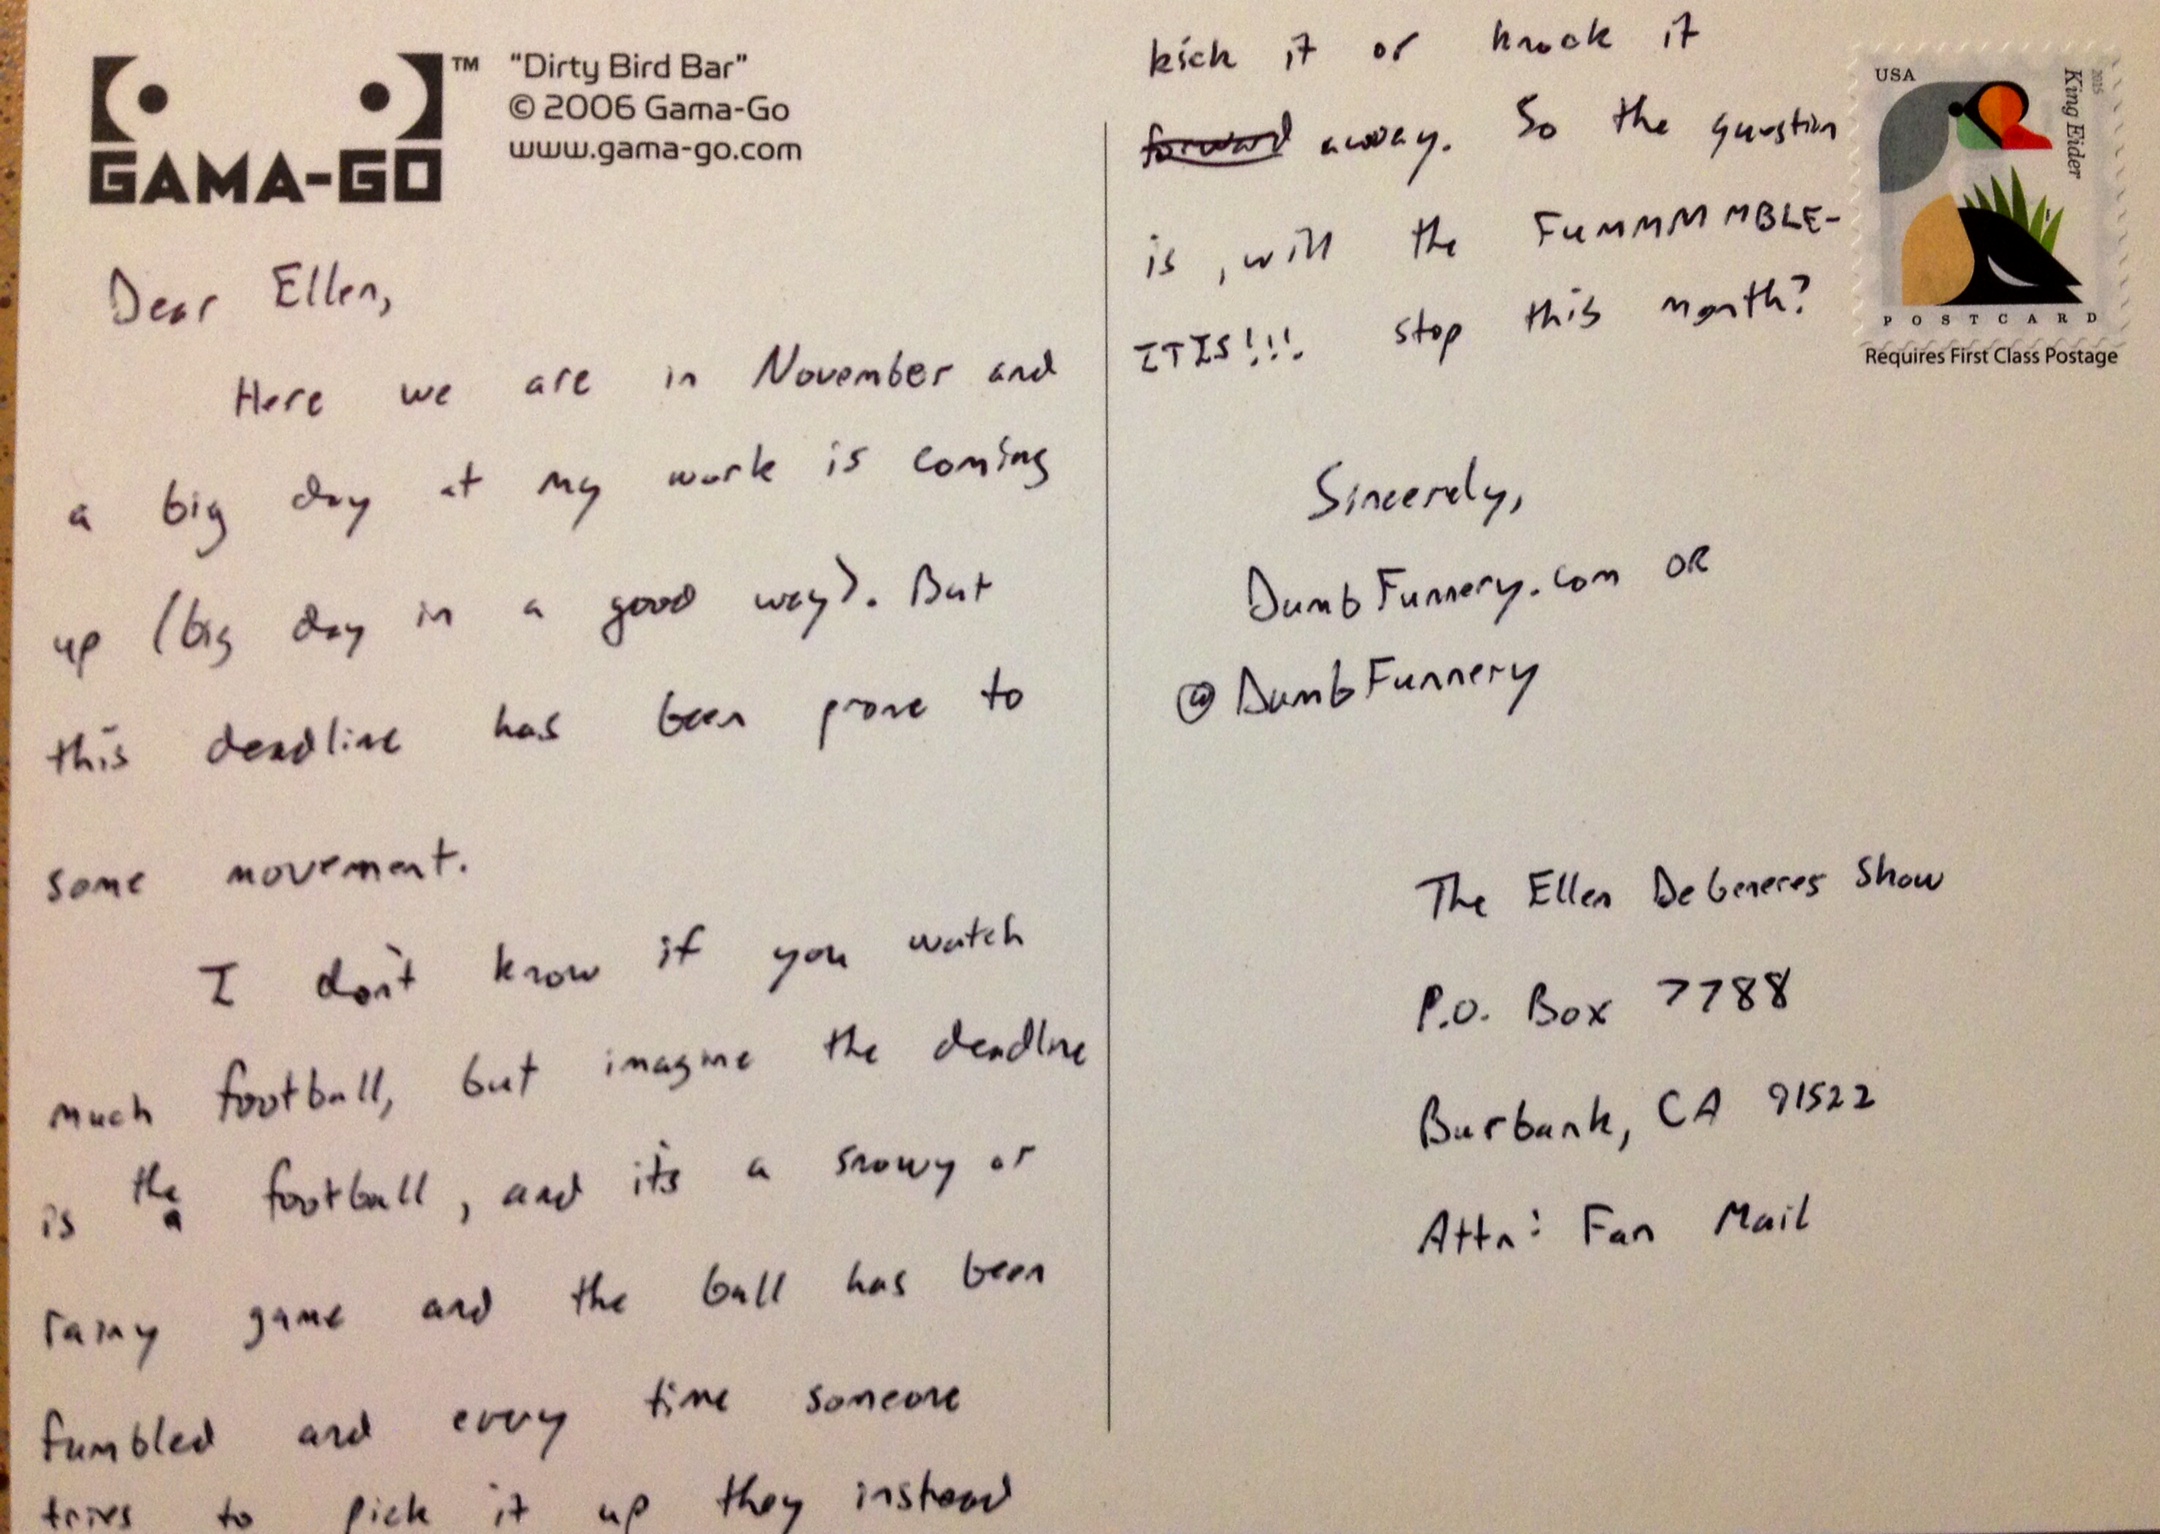 GAMA-GO™
"Dirty Bird Bar"
© 2006 Gama-Go
www.gama-go.com
Dear Ellen,
Here we are in November and
a big day at my work is coming
up (big day in a good way). But
this deadline has been prone to
some movement.
I don't know if you watch
much football, but imagine the deadline
is the football, and it's a snowy or
rainy game and the ball has been
fumbled and every time someone
tries to pick it up they instead
kick it or knock it
forward away. So the question
is, will the FUMMMMBLE-
ITIS!!! stop this month?
Sincerely,
DumbFunnery.com OR
@DumbFunnery
USA
2015
King Eider
POSTCARD
Requires First Class Postage
The Ellen DeGeneres Show
P.O. Box 7788
Burbank, CA 91522
Attn: Fan Mail